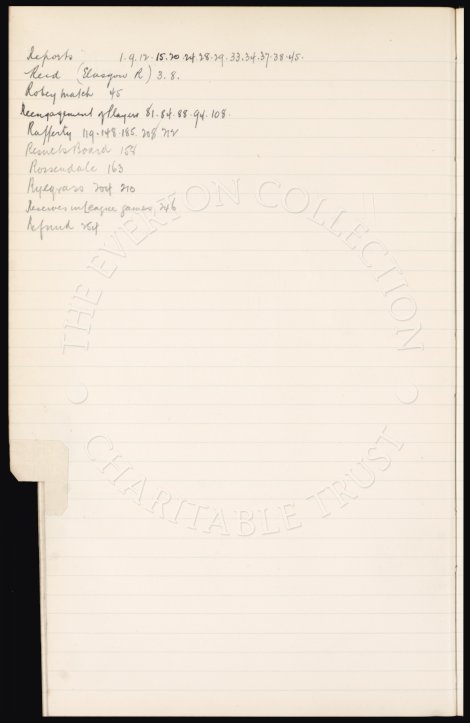 Reports 1.9.12.15.20.24.28.29.33.34.37.38.45.
Reid (Glasgow R) 3.8.
Robey match 45
Reengagement of Players 81.84.88.94.108.
Rafferty 119.148.185.208.212
Results Board 158
Rossendale 163
Ryegrass 204 210
Reserves in League games, 246
Refund 254
THE EVERTON COLLECTION
CHARITABLE TRUST